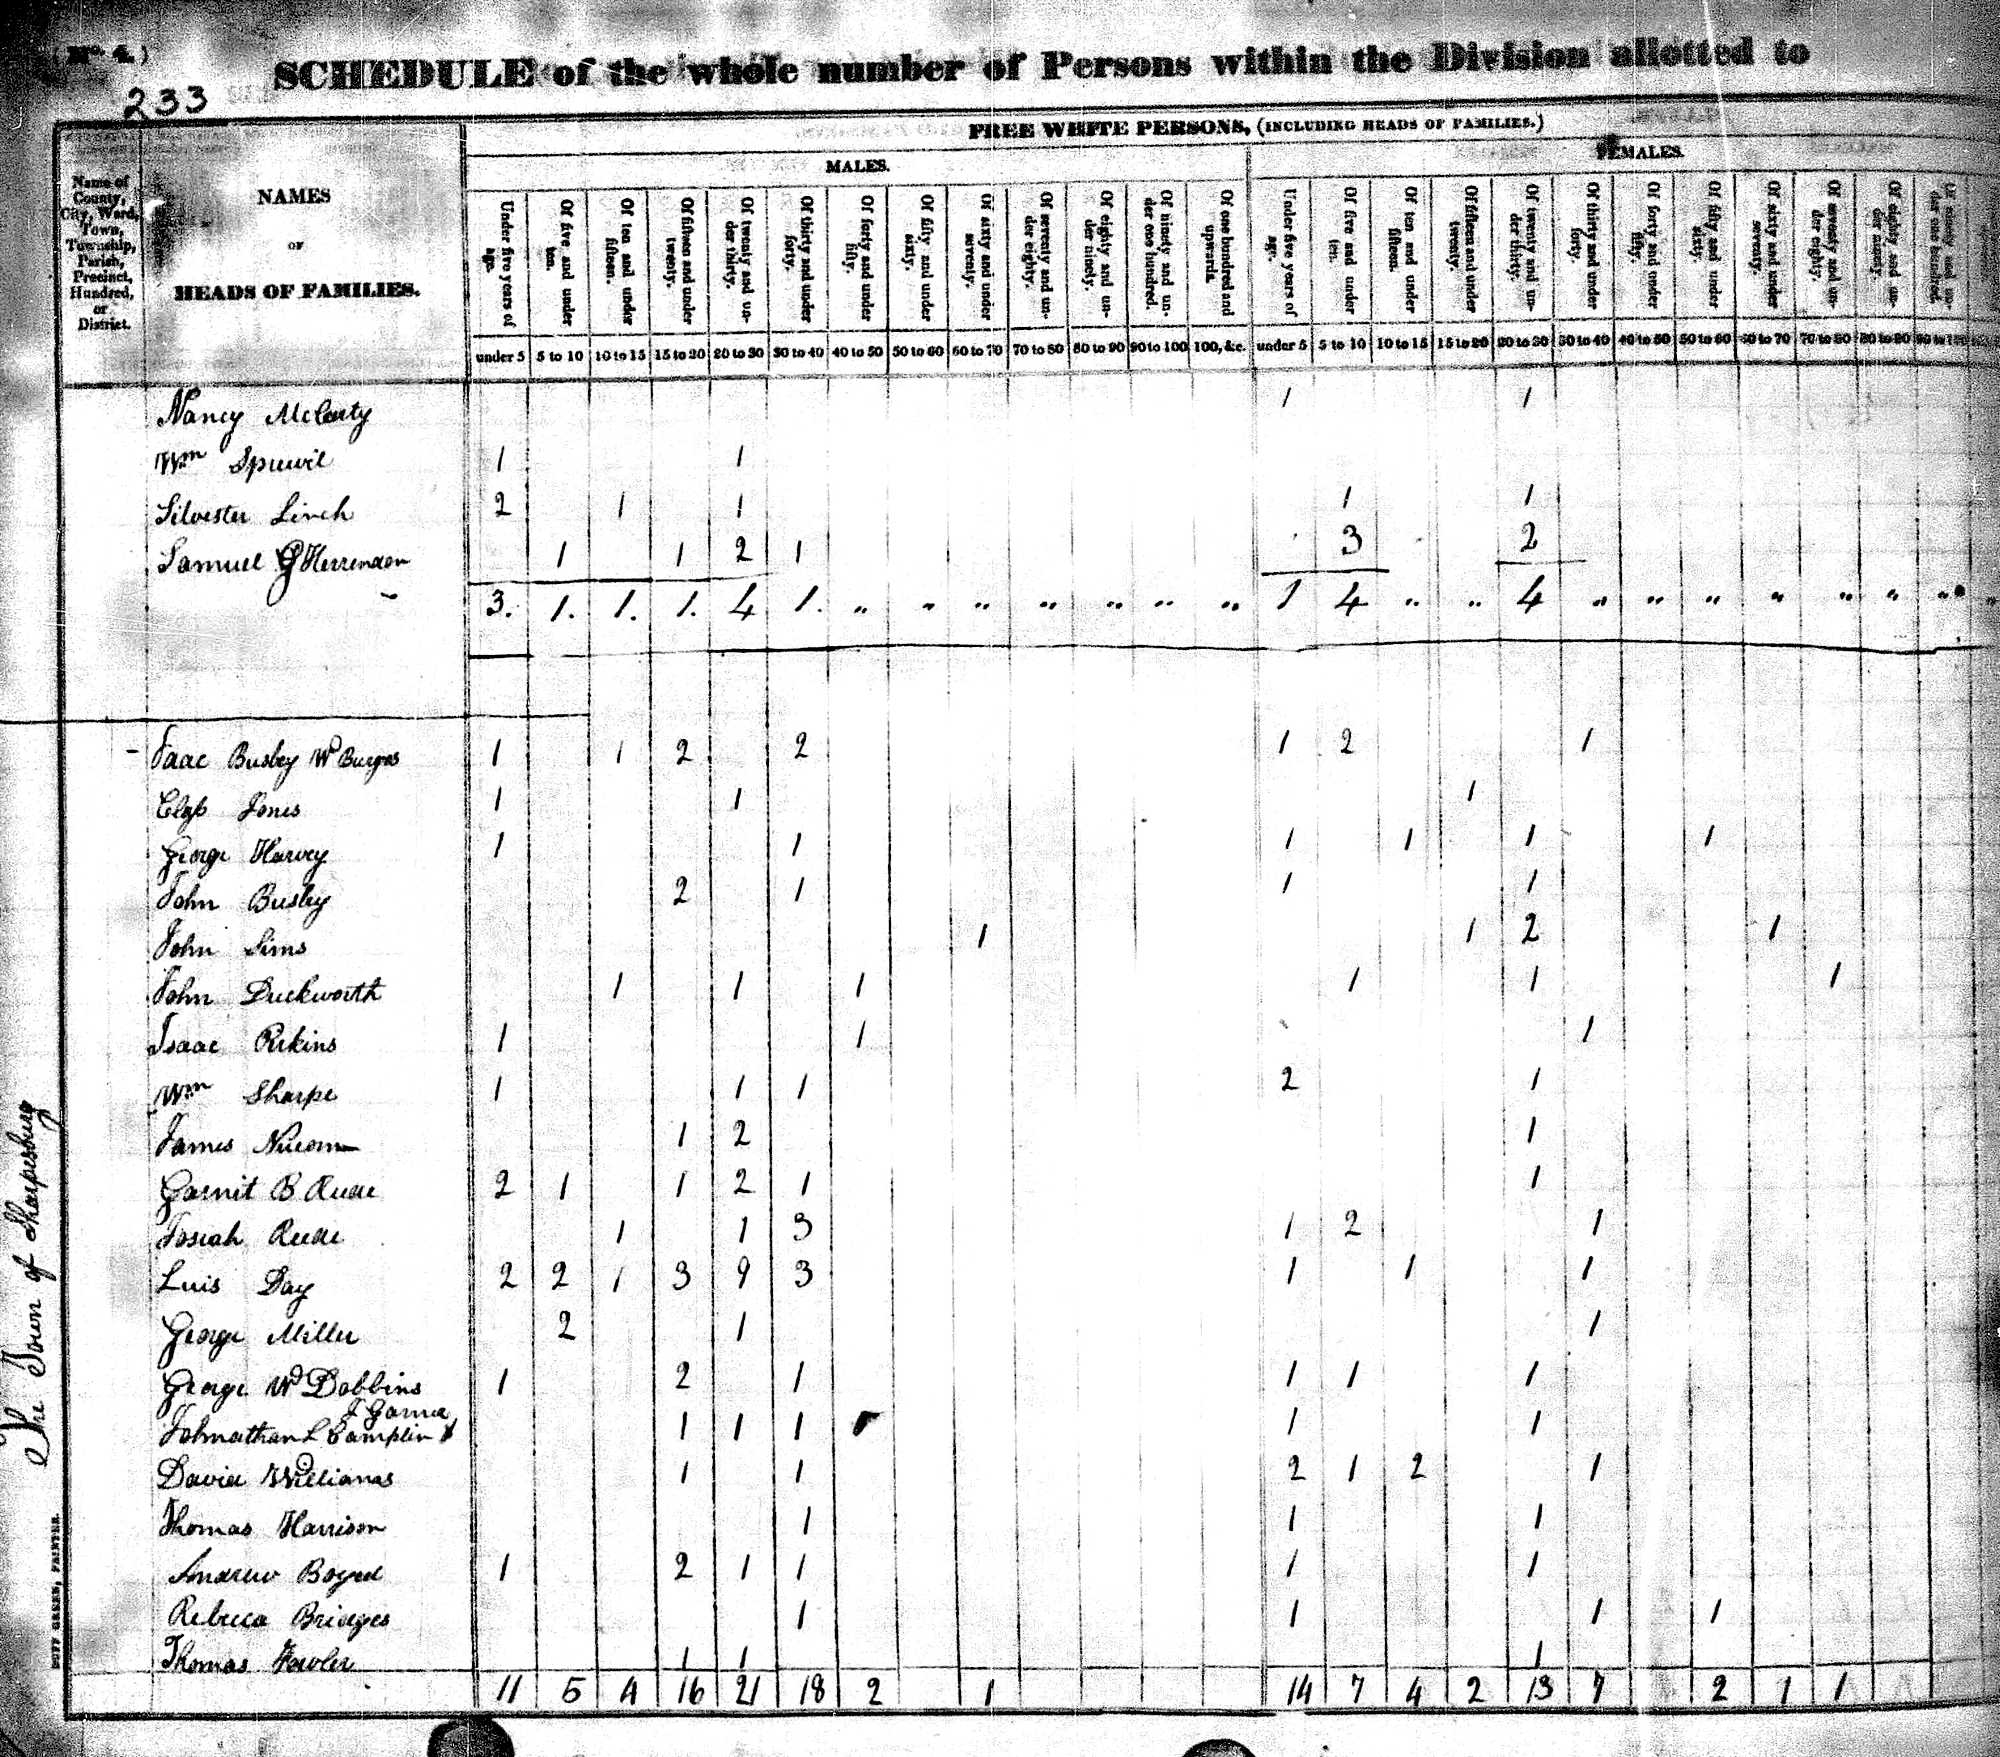 (No. 4.)
SCHEDULE of the whole number of Persons within the Division allotted to
233
FREE WHITE PERSONS, (INCLUDING HEADS OF FAMILIES.)
MALES. FEMALES.
Name of County, City, Ward, Town, Township, Parish, Precinct, Hundred, or District.
NAMES
OF
HEADS OF FAMILIES.
Under five years of age. Of five and under ten. Of ten and under fifteen. Of fifteen and under twenty. Of twenty and under thirty. Of thirty and under forty. Of forty and under fifty. Of fifty and under sixty. Of sixty and under seventy. Of seventy and under eighty. Of eighty and under ninety. Of ninety and under one hundred. Of one hundred and upwards. Under five years of age. Of five and under ten. Of ten and under fifteen. Of fifteen and under twenty. Of twenty and under thirty. Of thirty and under forty. Of forty and under fifty. Of fifty and under sixty. Of sixty and under seventy. Of seventy and under eighty. Of eighty and under ninety. Of ninety and under one hundred.
under 5 5 to 10 10 to 15 15 to 20 20 to 30 30 to 40 40 to 50 50 to 60 60 to 70 70 to 80 80 to 90 90 to 100 100, &c. under 5 5 to 10 10 to 15 15 to 20 20 to 30 30 to 40 40 to 50 50 to 60 60 to 70 70 to 80 80 to 90 90 to 100
Nancy McCarty 1 1
Wm Spruwil 1 1
Silvester Linch 2 1 1 1 1
Samuel G Herrendon 1 1 2 1 3 2
3. 1. 1. 1. 4 1. " " " " " " " 1 4 " " 4 " " " " " " "
Isaac Busby W Burges 1 1 2 2 1 2 1
Jones 1 1 1
George Harvey 1 1 1 1 1 1
John Busby 2 1 1 1
John Sims 1 1 2 1
John Duckworth 1 1 1 1 1 1
Isaac Pirkins 1 1 1
Wm Sharpe 1 1 1 2 1
James 1 2 1
Garnit B Reede 2 1 1 2 1 1
Josiah Reede 1 1 3 1 2 1
Luis Day 2 2 1 3 9 3 1 1 1
George Miller 2 1 1
George W Dobbins 1 2 1 1 1 1
Johnathan L Camplin 1 1 1 1 1
David Willianas 1 1 2 1 2 1
Thomas Harrison 1 1 1
Andrew Boyed 1 2 1 1 1 1
Rebeca Bridges 1 1 1 1
Thomas Fowler 1 1 1
11 5 4 16 21 18 2 1 14 7 4 2 13 7 2 1 1
The Town of Sharpesburg
DUFF GREEN, PRINTER.